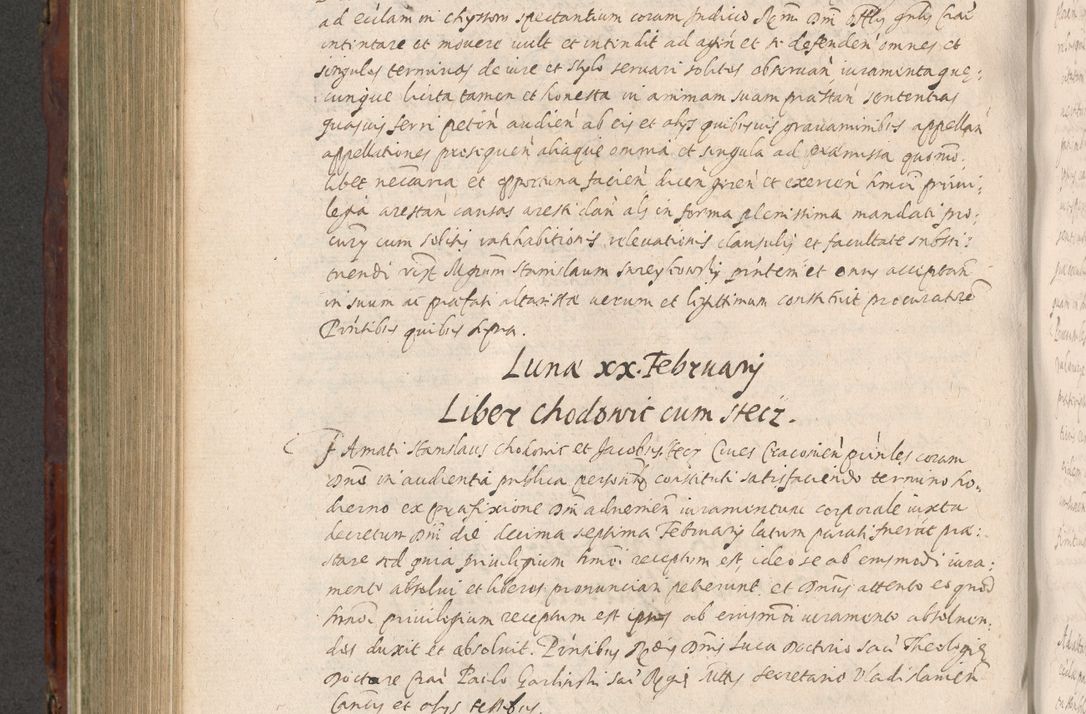 ad ecclam in chyssow spectantium coram Judicio Rmi Dni offlis gnlis Crac
intentare et movere vult et intendit ad agen et se defenden omnes et
singulos terminos de iure et stylo servari solitos observan iuramenta quę:
cunque licita tamen et honesta in animam suam præstan sententias
quasvis ferri peten audien ab eis et alys quibusvis gravaminibus appellan
appellationes prosequen aliaque omnia et singula ad præmissa quomo:
libet necaria et opportuna facien dicen geren et exercen hmoi privi:
legia arestan causas aresti dan als in forma plenissima mandati pro:
cury cum solitis ratihabitionis relevationis clausulis et facultate substi:
tuendi Mgrum Stanislaum pntem et onus acceptan
in suum ac præfati altaristæ verum et legittimum constituit procuratore
Pntibus quibus supra.
Luna xx. Februarij
Liber chodowic cum stecz.
Famati Stanislaus chodowic et Jacobus stecz Cives Cracovien pntes coram
Dno in audientia publica personlr constituti satisfaciendo termino ho:
dierno ex præfixione Dni advenien iuramentum corporale iuxta
decretum Dni die decima septima Februarij latum parati fuerat præ:
stare sed quia privilegium hmoi receptum est ideo se ab eiusmodi iura:
mento absolvi et liberos pronuncian petierunt et Dnus attento eo quod
hmoi privilegium receptum est ipsos ab eiusmoi iuramento absolven:
dos duxit et absolvit. Pntibus Rdis Dnis Luca Doctorio sac Theologię
Doctore Crac Paulo Garlinski Sac Regię Mttis Secretario Vladislavien
Cancis et alys testibus.